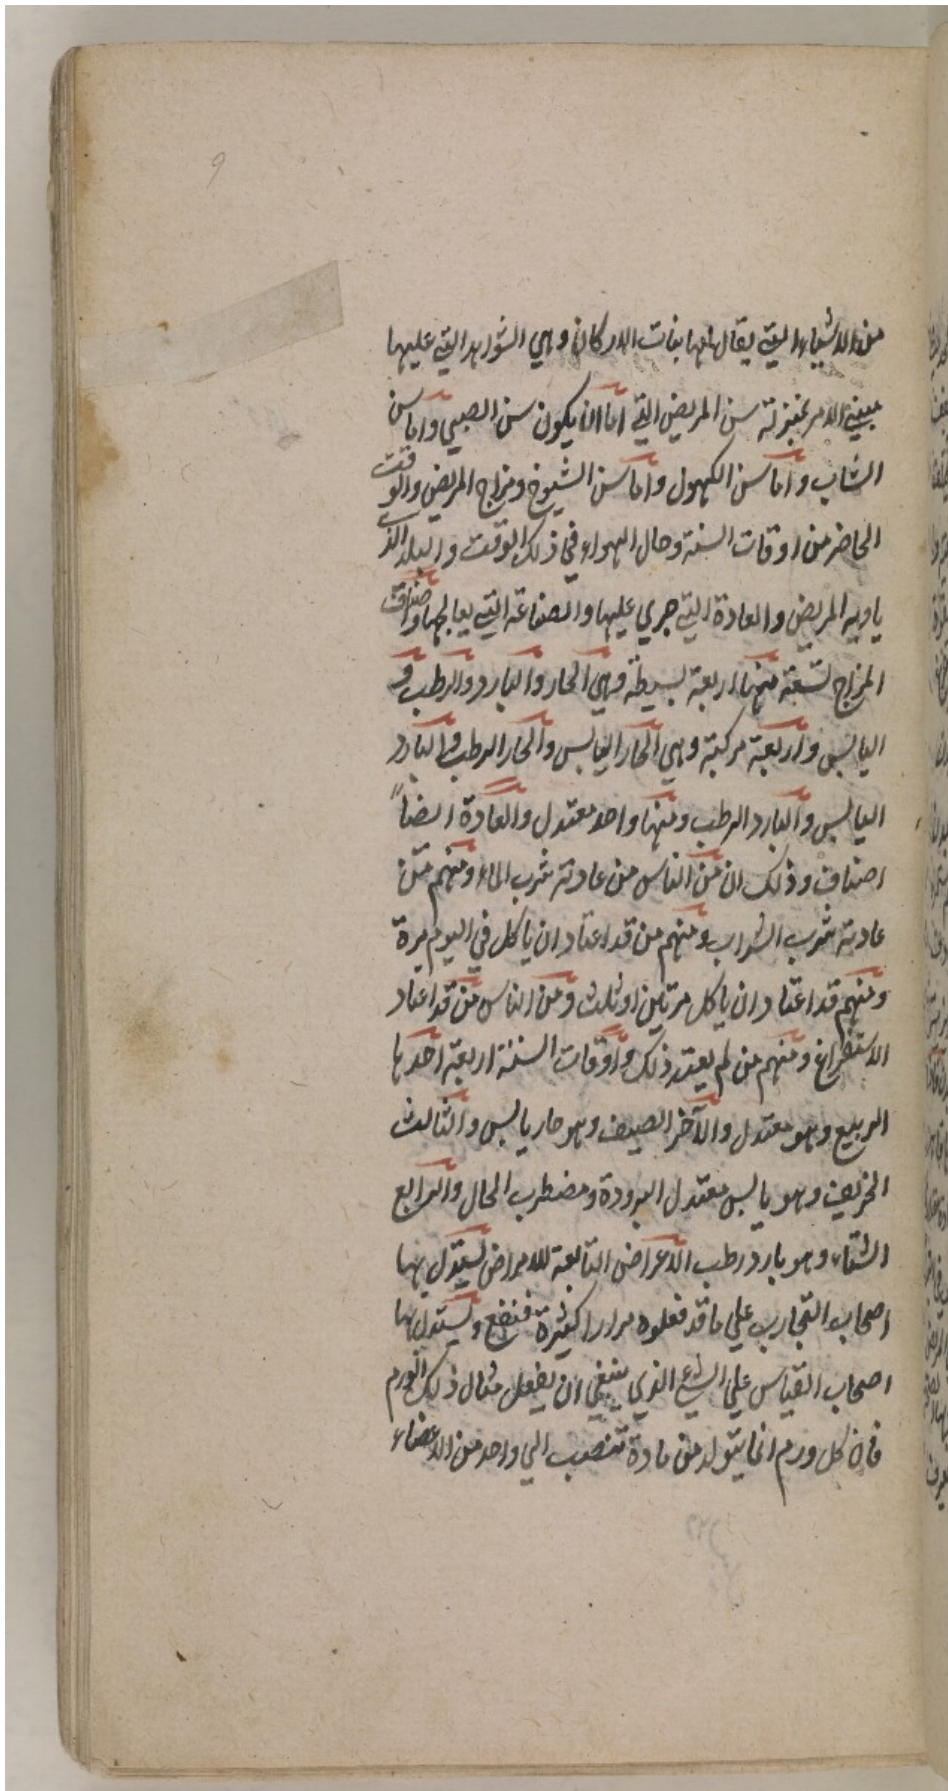 من الاشياء التي يقال لها بنات الاركان وهي الشواهد التي عليها
مبني الامر بمنزلة سن المريض التي اما ان يكون سن الصبي واما سن
الشاب واما سن الكهول واما سن الشيوخ ومزاج المريض والوقت
الحاضر من اوقات السنة وحال الهواء في ذلك الوقت والبلد الذي
ياويه المريض والعادة التي جري عليها والصناعة التي يعالجها واصناف
المزاج تسعة منها اربعة بسيطة وهي الحار والبارد والرطب و
اليابس واربعة مركبة وهي الحار اليابس والحار الرطب والبارد
اليابس والبارد الرطب ومنها واحد معتدل والعادة ايضاً
اصناف وذلك ان من الناس من عادته شرب الماء ومنهم من
عادته شرب الشراب ومنهم من قد اعتاد ان ياكل في اليوم مرة
ومنهم قد اعتاد ان ياكل مرتين او ثلث ومن الناس من قد اعتاد
الاستفراغ ومنهم من لم يعتد ذلك واوقات السنة اربعة احدها
الربيع وهو معتدل والآخر الصيف وهو حار يابس والثالث
الخريف وهو يابس معتدل البرودة ومضطرب الحال والرابع
الشتاء وهو بارد رطب الاعراض التابعة للامراض يستدل بها
اصحاب التجارب علي ما قد فعلوه مرارا كثيرة فنفع ويستدل بها
اصحاب القياس علي الشيء الذي ينبغي ان يفعل مثال ذلك الورم
فان كل ورم انما يتولد من مادة تنصب الي واحد من الاعضاء